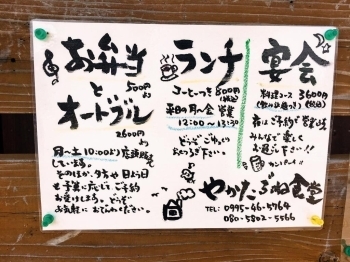 お弁当
500円より
と
オードブル
2600円より
月〜土 10:00より店頭販売
しています。
そのほか、夕方や日よう日
も予算に応じてご予約
お受けします。どうぞ
お気軽におでんわ下さい。
ランチ
コーヒーつき 800円
(税込)
平日の月〜金 営業
12:00〜13:30
どうぞごゆっくり
おたちより下さい。
宴会
料理コース 3600円
(税込)
夜はご予約で営業します
みんなで楽しく
お過ごし下さい!!
カンパーイ!!
やかたぶね食堂
TEL: 0995-46-5764
080-5802-5566